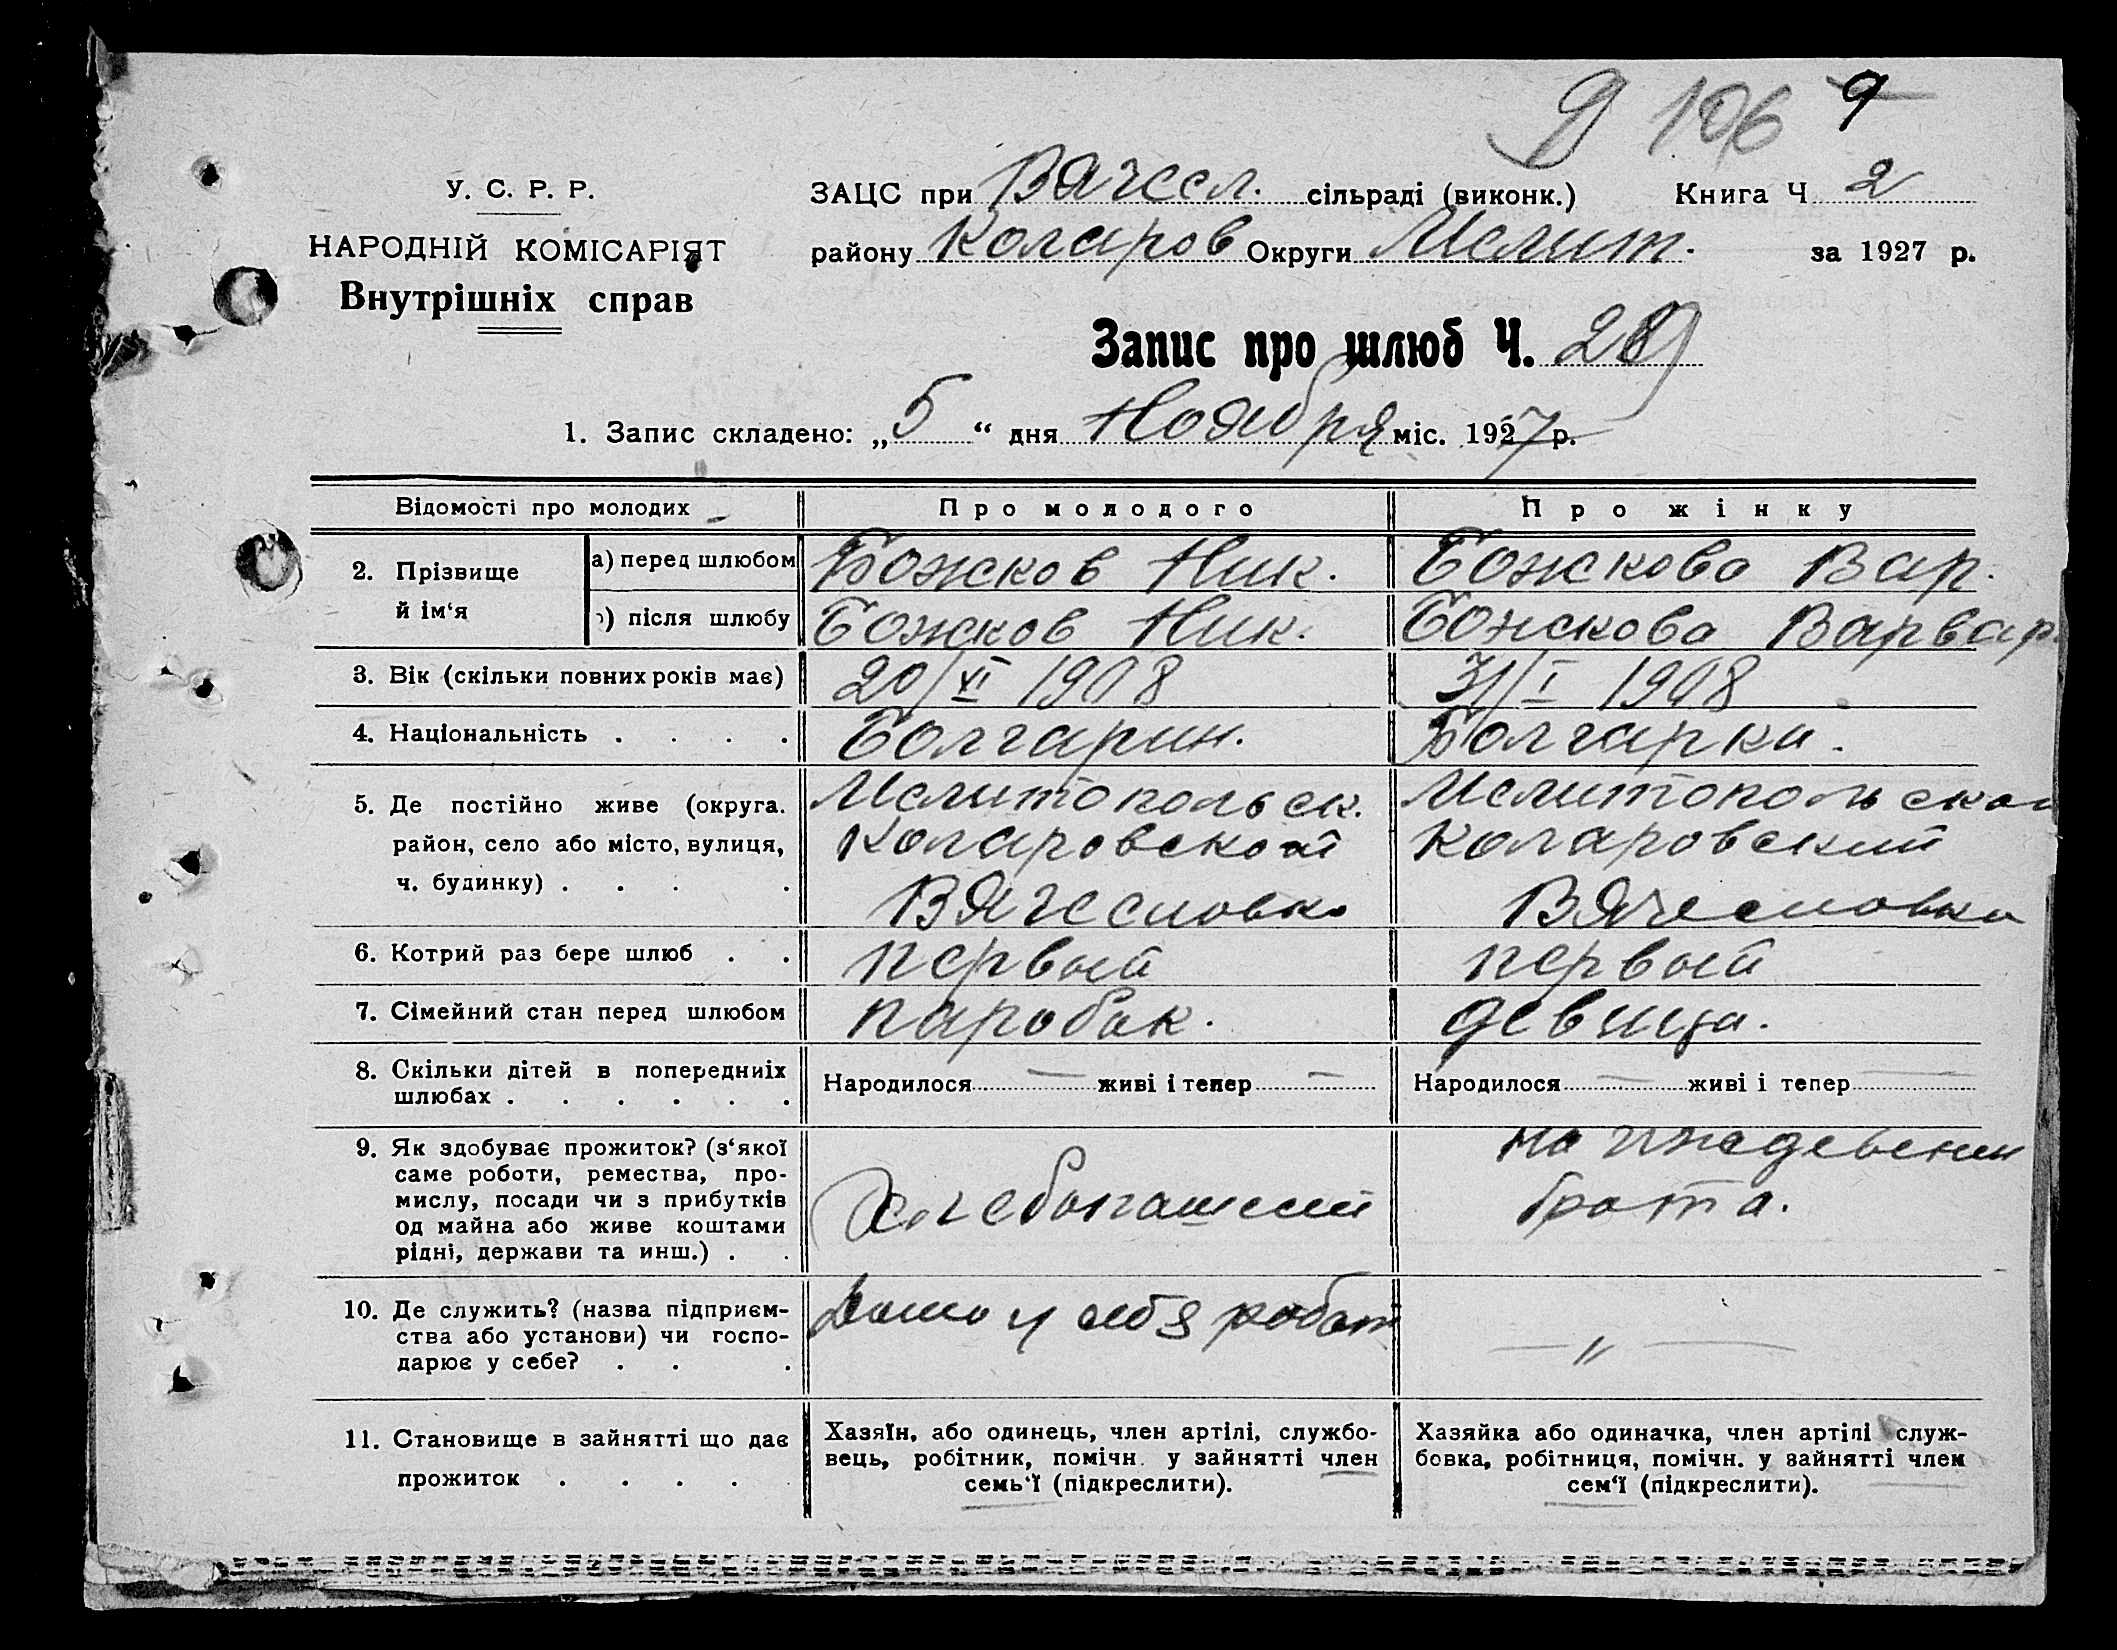 9 106 9
У. С. Р. Р.
НАРОДНІЙ КОМІСАРІЯТ
Внутрішніх справ
ЗАЦС при Вячесл. сільраді (виконк.) Книга Ч 2
району Коларов Округи Мелит. за 1927 р.
Запис про шлюб Ч. 29
1. Запис складено: „5“ дня Ноября міс. 1927 р.
Відомості про молодих Про молодого Про жінку
2. Прізвище й ім‘я
а) перед шлюбом Божков Ник. Божкова Вар.
) після шлюбу Божков Ник. Божкова Варвар
3. Вік (скільки повних років має) 20/VI 1908 31/I 1908
4. Національність . . . . Болгарин. Болгарка.
5. Де постійно живе (округа.
район, село або місто, вулиця,
ч. будинку) . . . .
Мелитопольск.
Коларовской
Вячесловка
Мелитопольской
Коларовский
Вячесловка
6. Котрий раз бере шлюб . . первый первый
7. Сімейний стан перед шлюбом паробок. девица.
8. Скільки дітей в попередниіх
шлюбах . . . . . .
Народилося — живі і тепер —
Народилося — живі і тепер —
9. Як здобуває прожиток? (з‘якої
саме роботи, ремества, про-
мислу, посади чи з прибутків
од майна або живе коштами
рідні, держави та инш.) . .
Хлебопашеский
на иждевении
брата.
10. Де служить? (назва підприєм-
ства або установи) чи госпо-
дарює у себе? . . .
Дома у себя работ
— „ —
11. Становище в зайнятті що дає
прожиток . . . .
Хазяїн, або одинець, член артілі, службо-
вець, робітник, помічн. у зайнятті член
семь‘ї (підкреслити).
Хазяйка або одиначка, член артілі служ-
бовка, робітниця, помічн. у зайнятті член
сем‘ї (підкреслити).